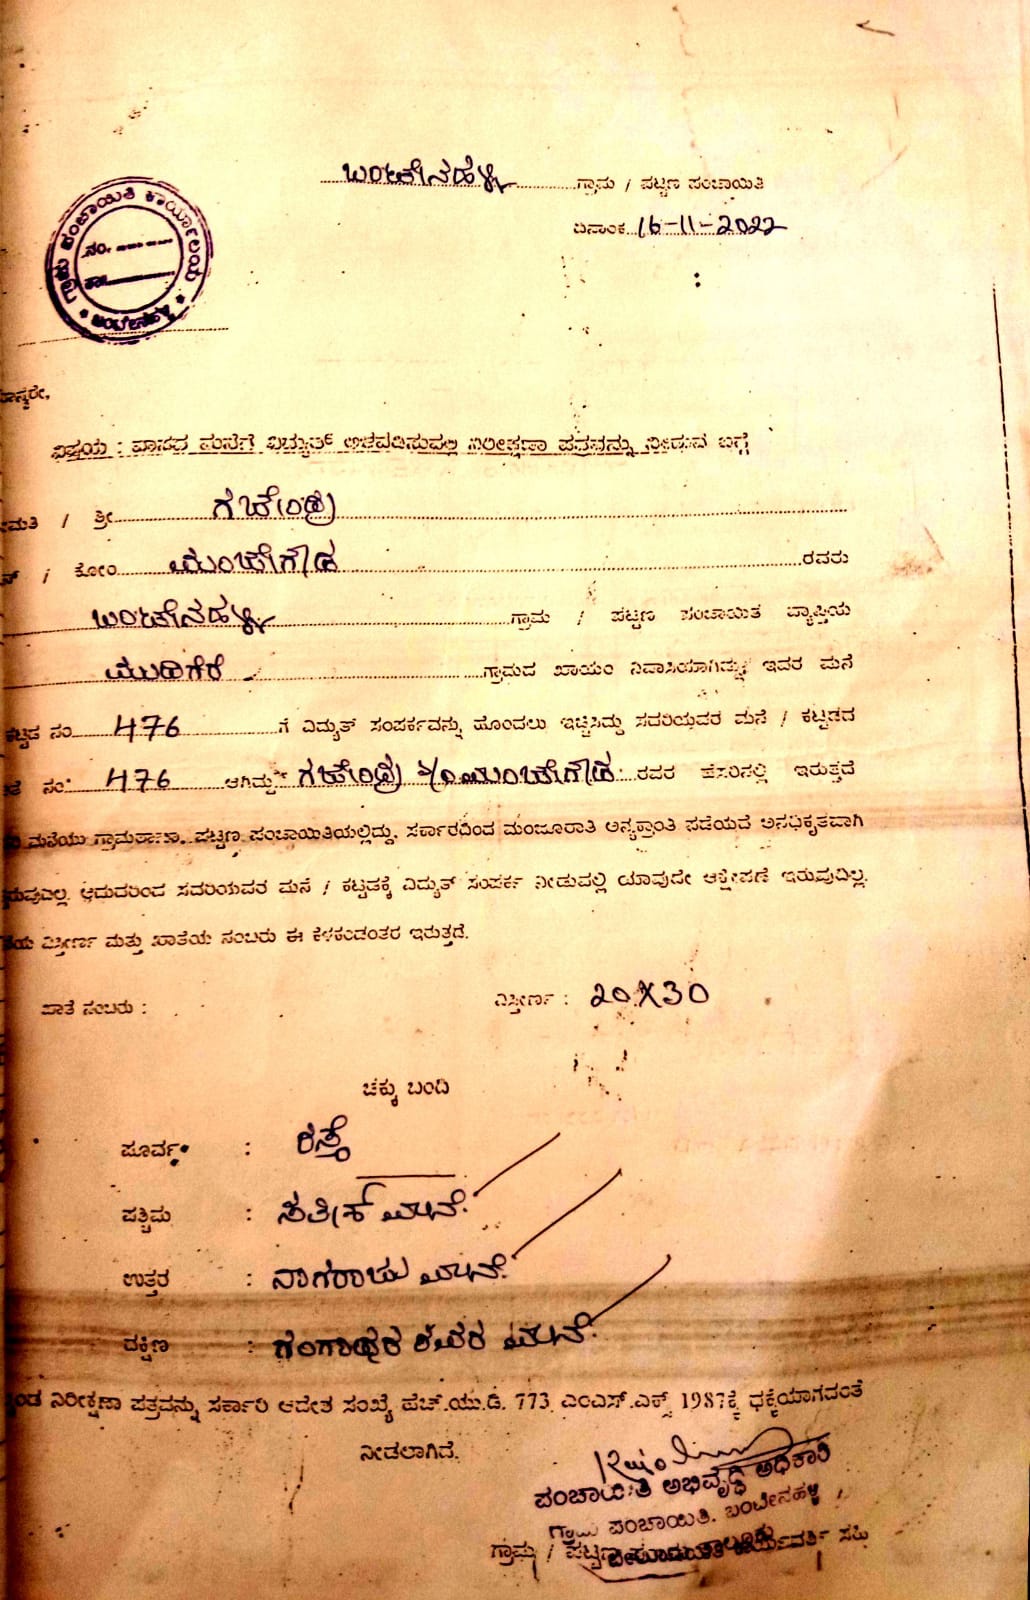 ಬಂಟೇನಹಳ್ಳಿ ಗ್ರಾಮ / ಪಟ್ಟಣ ಪಂಚಾಯಿತಿ
ದಿನಾಂಕ 16-11-2022
ಗ್ರಾಮ ಪಂಚಾಯಿತಿ ಕಾರ್ಯಾಲಯ
ನಂ.
ತಾ.
* ಬಂಟೇನಹಳ್ಳಿ *
ವಿಷಯ : ವಾಸದ ಮನೆಗೆ ವಿದ್ಯುತ್ ಅಳವಡಿಸುವಲ್ಲಿ ನಿರೀಕ್ಷಣಾ ಪತ್ರವನ್ನು ನೀಡುವ ಬಗ್ಗೆ
ಮತಿ / ಶ್ರೀ ಗಜೇಂದ್ರ
/ ಕೋಂ ಮಂಜೇಗೌಡ ರವರು
ಬಂಟೇನಹಳ್ಳಿ ಗ್ರಾಮ / ಪಟ್ಟಣ ಪಂಚಾಯಿತಿ ವ್ಯಾಪ್ತಿಯ
ಮುದಿಗೆರೆ ಗ್ರಾಮದ ಖಾಯಂ ನಿವಾಸಿಯಾಗಿದ್ದು, ಇವರ ಮನೆ
ಕಟ್ಟಡ ನಂ. 476 ಗೆ ವಿದ್ಯುತ್ ಸಂಪರ್ಕವನ್ನು ಹೊಂದಲು ಇಚ್ಛಿಸಿದ್ದು ಸದರಿಯವರ ಮನೆ / ಕಟ್ಟಡದ
ನಂ 476 ಆಗಿದ್ದು ಗಜೇಂದ್ರ S/o ಮಂಜೇಗೌಡ ರವರ ಹೆಸರಿನಲ್ಲಿ ಇರುತ್ತದೆ
ಮನೆಯು ಗ್ರಾಮಠಾಣಾ, ಪಟ್ಟಣ ಪಂಚಾಯಿತಿಯಲ್ಲಿದ್ದು, ಸರ್ಕಾರದಿಂದ ಮಂಜೂರಾತಿ ಅನ್ಯಕ್ರಾಂತಿ ಪಡೆಯದೆ ಅನಧಿಕೃತವಾಗಿ
ಆದುದರಿಂದ ಸದರಿಯವರ ಮನೆ / ಕಟ್ಟಡಕ್ಕೆ ವಿದ್ಯುತ್ ಸಂಪರ್ಕ ನೀಡುವಲ್ಲಿ ಯಾವುದೇ ಆಕ್ಷೇಪಣೆ ಇರುವುದಿಲ್ಲ.
ವಿಸ್ತೀರ್ಣ ಮತ್ತು ಖಾತೆಯ ನಂಬರು ಈ ಕೆಳಕಂಡಂತೆ ಇರುತ್ತದೆ.
ಖಾತೆ ನಂಬರು : ವಿಸ್ತೀರ್ಣ : 20X30
ಚಕ್ಕು ಬಂದಿ
ಪೂರ್ವ : ರಸ್ತೆ
ಪಶ್ಚಿಮ : ಸತೀಶ್ ಮನೆ.
ಉತ್ತರ : ನಾಗರಾಜು ಮನೆ.
ದಕ್ಷಿಣ : ಗಂಗಾಧರ ರವರ ಮನೆ.
ನಿರೀಕ್ಷಣಾ ಪತ್ರವನ್ನು ಸರ್ಕಾರಿ ಆದೇಶ ಸಂಖ್ಯೆ ಹೆಚ್.ಯು.ಡಿ. 773 ಎಂಎಸ್.ಎಕ್ಸ್ 1987ಕ್ಕೆ ಧಕ್ಕೆಯಾಗದಂತೆ
ನೀಡಲಾಗಿದೆ.
ಪಂಚಾಯಿತಿ ಅಭಿವೃದ್ಧಿ ಅಧಿಕಾರಿ
ಗ್ರಾಮ ಪಂಚಾಯಿತಿ, ಬಂಟೇನಹಳ್ಳಿ
ಗ್ರಾಮ / ಪಟ್ಟಣ